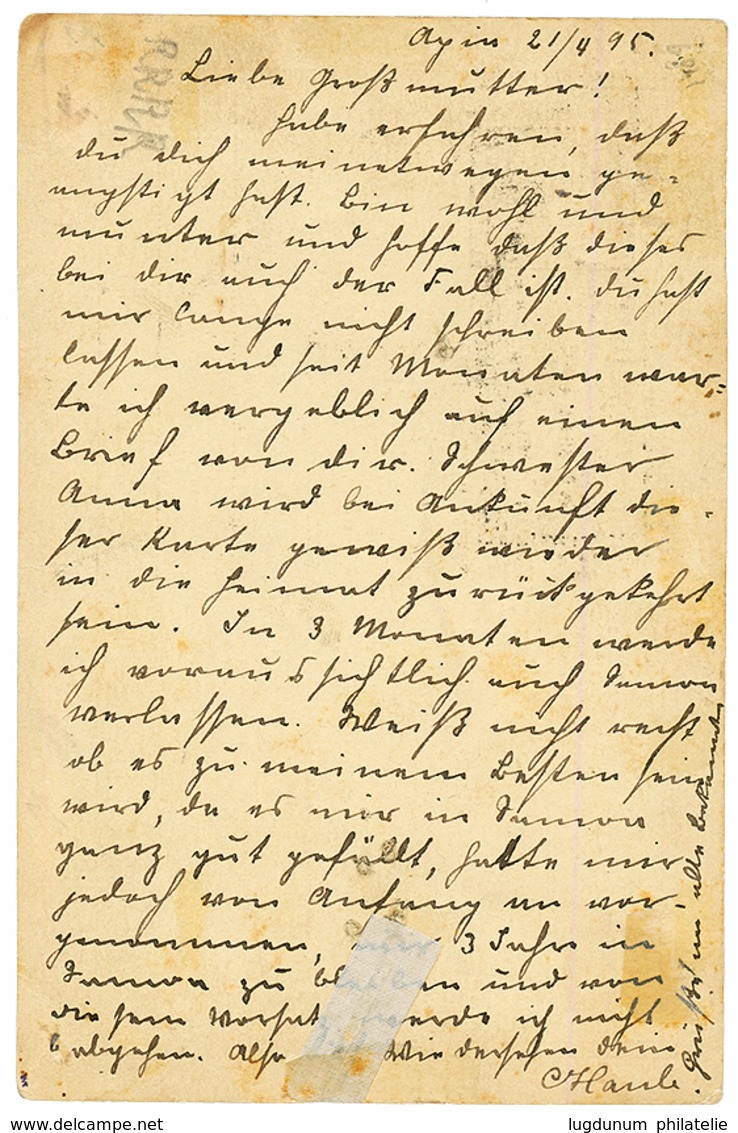 Apia 21/4 95.
Liebe Großmutter!
Habe erfahren, daß
du dich meinetwegen ge-
ängstigt hast. Bin wohl und
munter und hoffe daß dieses
bei dir auch der Fall ist. Du hast
mir lange nicht schreiben
lassen und seit Monaten war-
te ich vergeblich auf einen
Brief von dir. Schwester
Anna wird bei Ankunft die-
ser Karte gewiß wieder
in die Heimat zurückgekehrt
sein. In 3 Monaten werde
ich voraussichtlich auch Samoa
verlassen. Weiß nicht recht
ob es zu meinem Besten sein
wird, da es mir in Samoa
ganz gut gefällt, hatte mir
jedoch von Anfang an vor-
genommen, nur 3 Jahre in
Samoa zu bleiben und von
diesem Vorsatz werde ich nicht
abgehen. Also Wiedersehen dein
Grüße an alle Bekannte
RRRR
lugdunum philatelie